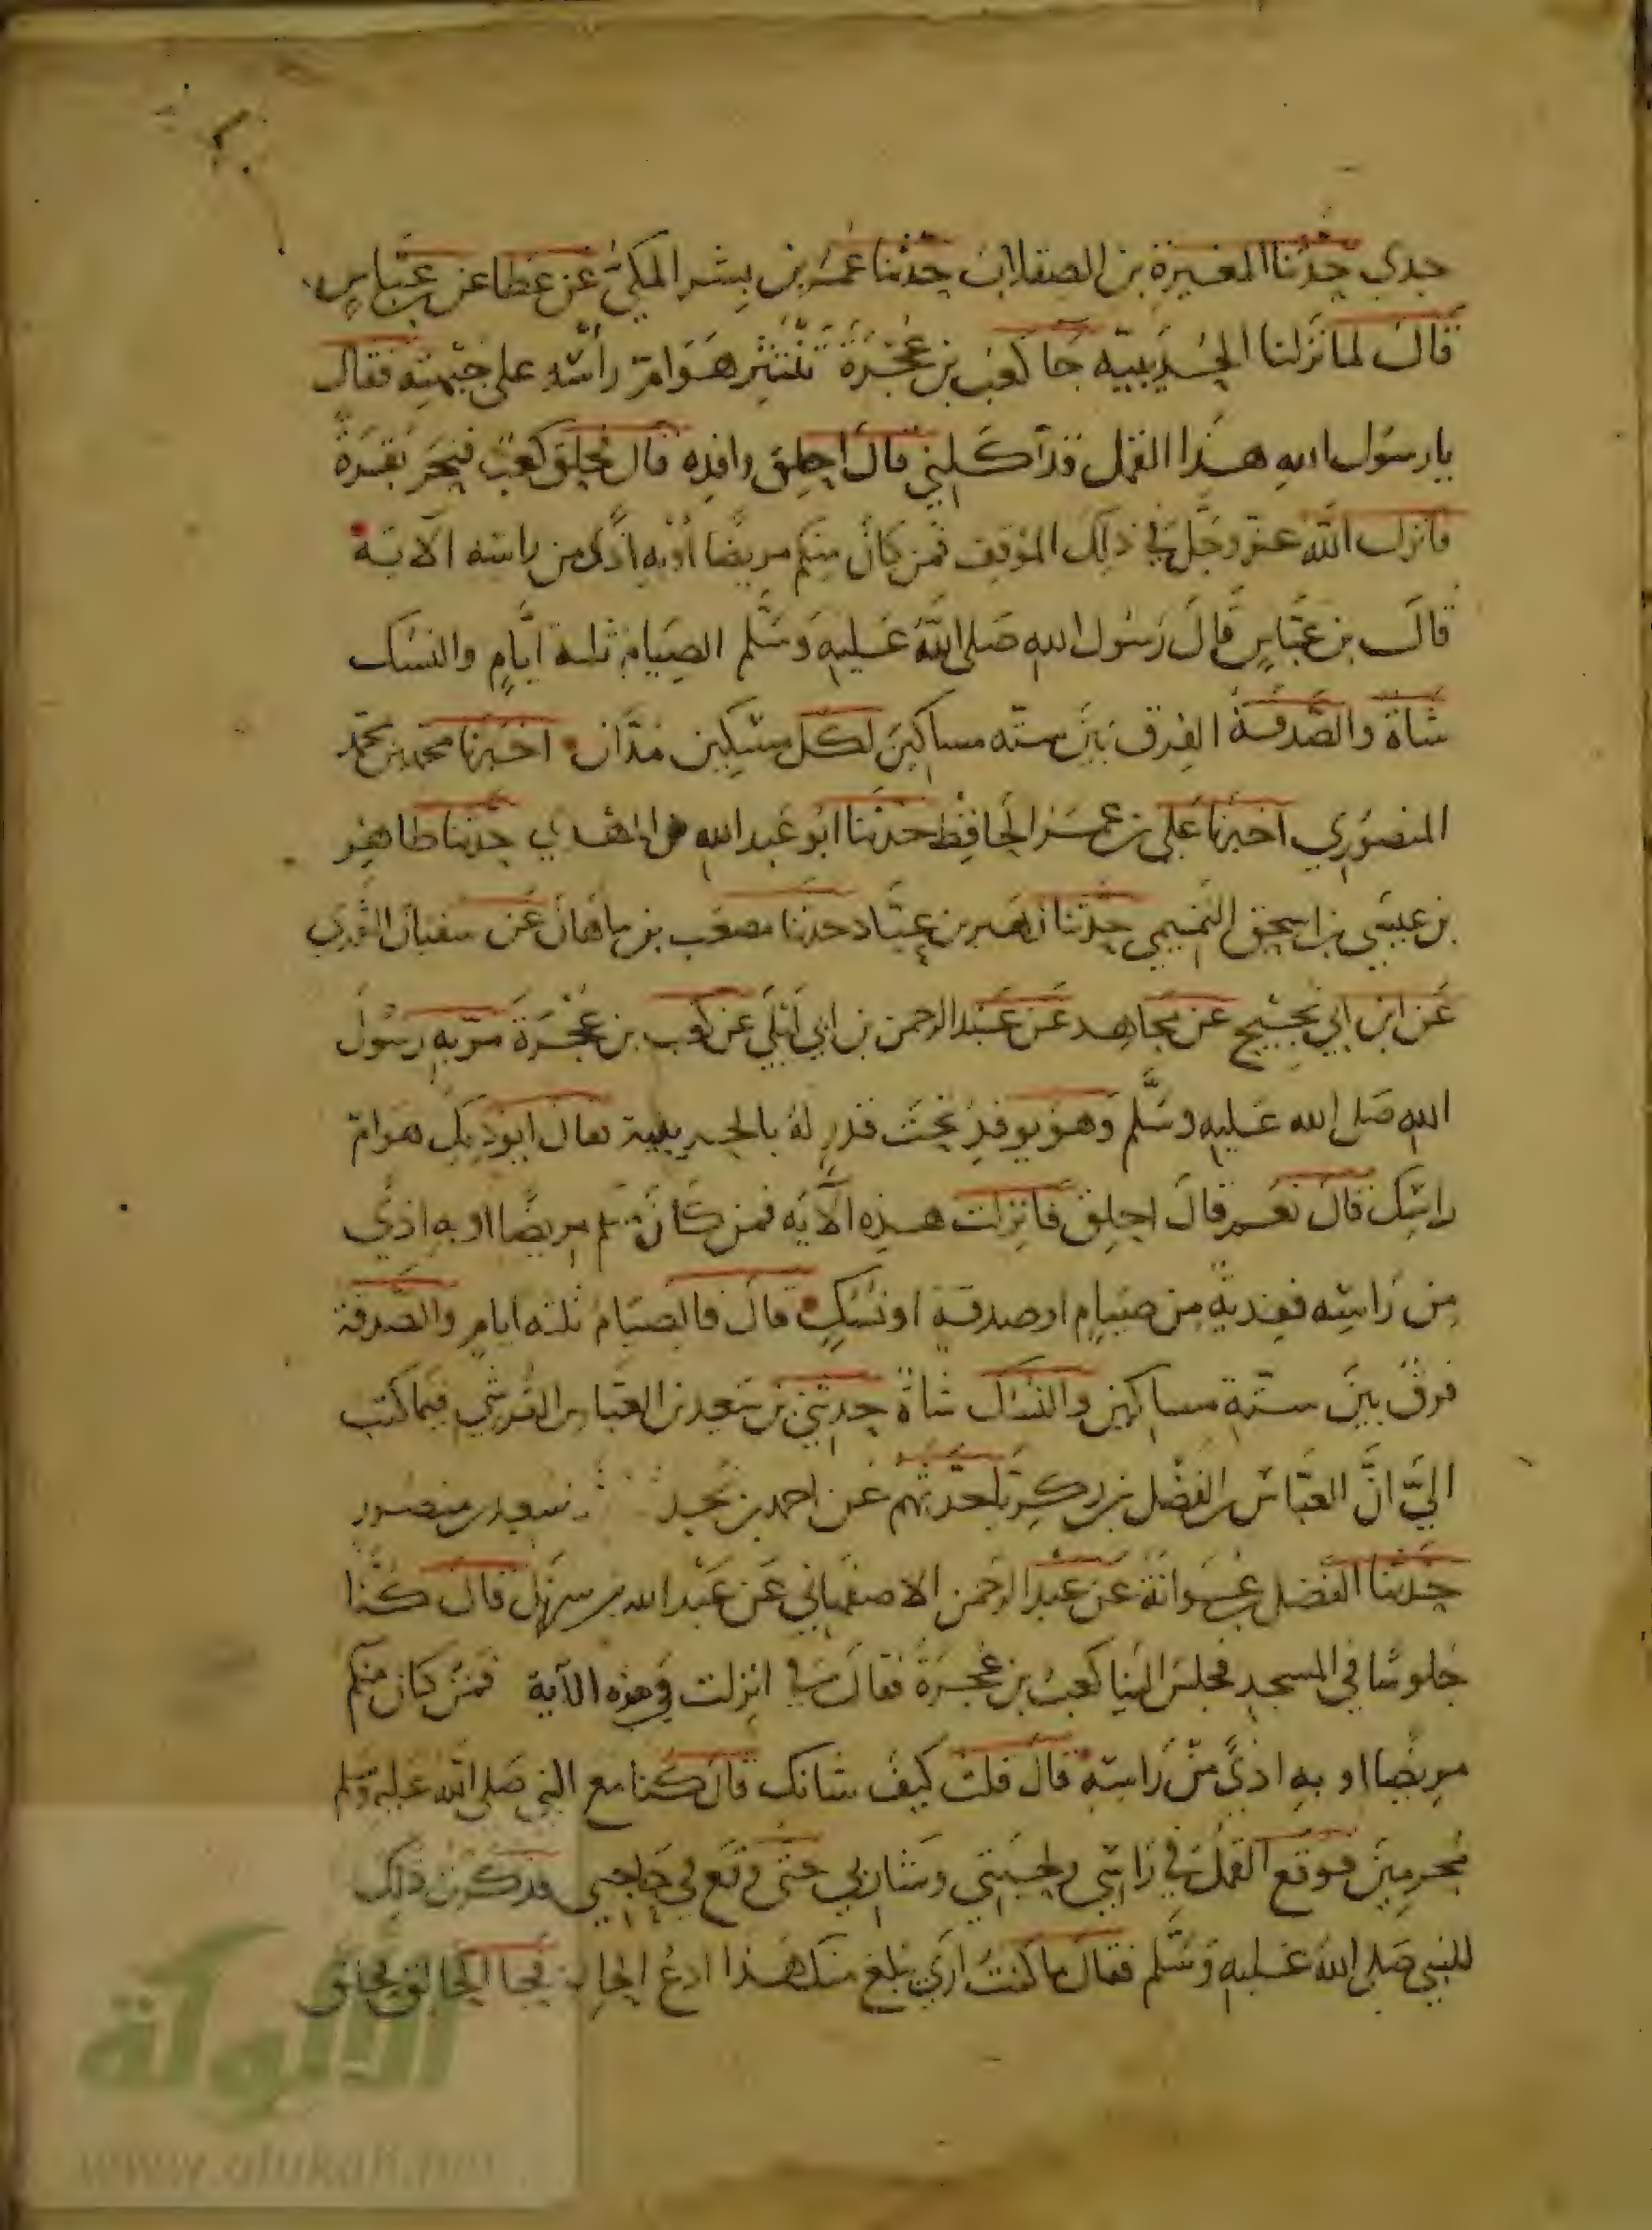 جدي حدثنا المغيرة بن الصقلاب حدثنا عمر بن بشر المكي عن عطا عن بن عباس
قال لما نزلنا الحديبية جا كعب بن عجرة تنتثر هوام رأسه على جبهته فقال
يا رسول الله هذا القمل قد أكلني قال احلق وافده قال فحلق كعب فنحر بقرة
فانزل الله عز وجل في ذلك الموقف فمن كان منكم مريضا أو به أذى من راسه الآية
قال بن عباس قال رسول الله صلى الله عليه وسلم الصيام ثلثة ايام والنسك
شاة والصدقة الفرق بين ستة مساكين لكل مسكين مدان اخبرنا محمد بن محمد
المنصوري اخبرنا علي بن عمر الحافظ حدثنا ابو عبد الله المهتدي حدثنا طاهر
بن عيسى بن اسحق التميمي حدثنا زهير بن عباد حدثنا مصعب بن ماهان عن سفيان الثوري
عن ابن ابي نجيح عن مجاهد عن عبد الرحمن بن ابي ليلى عن كعب بن عجرة مر به رسول
الله صلى الله عليه وسلم وهو يوقد تحت قدر له بالحديبية فقال ايوذيك هوام
راسك قال نعم قال احلق فانزلت هذه الآية فمن كان منكم مريضا او به اذى
من راسه ففدية من صيام او صدقة او نسك قال فالصيام ثلثة ايام والصدقة
فرق بين ستة مساكين والنسك شاة حدثني بن سعد بن العباس القرشي فيما كتب
الي ان العباس بن الفضل بن زكريا حدثهم عن احمد بن نجدة سعيد بن منصور
حدثنا الفضل عوانة عن عبد الرحمن الاصفهاني عن عبد الله بن قال كنا
جلوسا في المسجد فجلس الينا كعب بن عجرة فقال في انزلت في هذه الآية فمن كان منكم
مريضا او به اذى من راسه قال قلت كيف شانك قال كنا مع النبي صلى الله عليه وسلم
محرمين فوقع القمل في راسي ولحيتي وشاربي حتى وقع في حاجبي فذكرت ذلك
للنبي صلى الله عليه وسلم فقال ما كنت ارى بلغ منك هذا ادع الحالق فجا الحالق فحلق
الألوكة
www.alukah.net